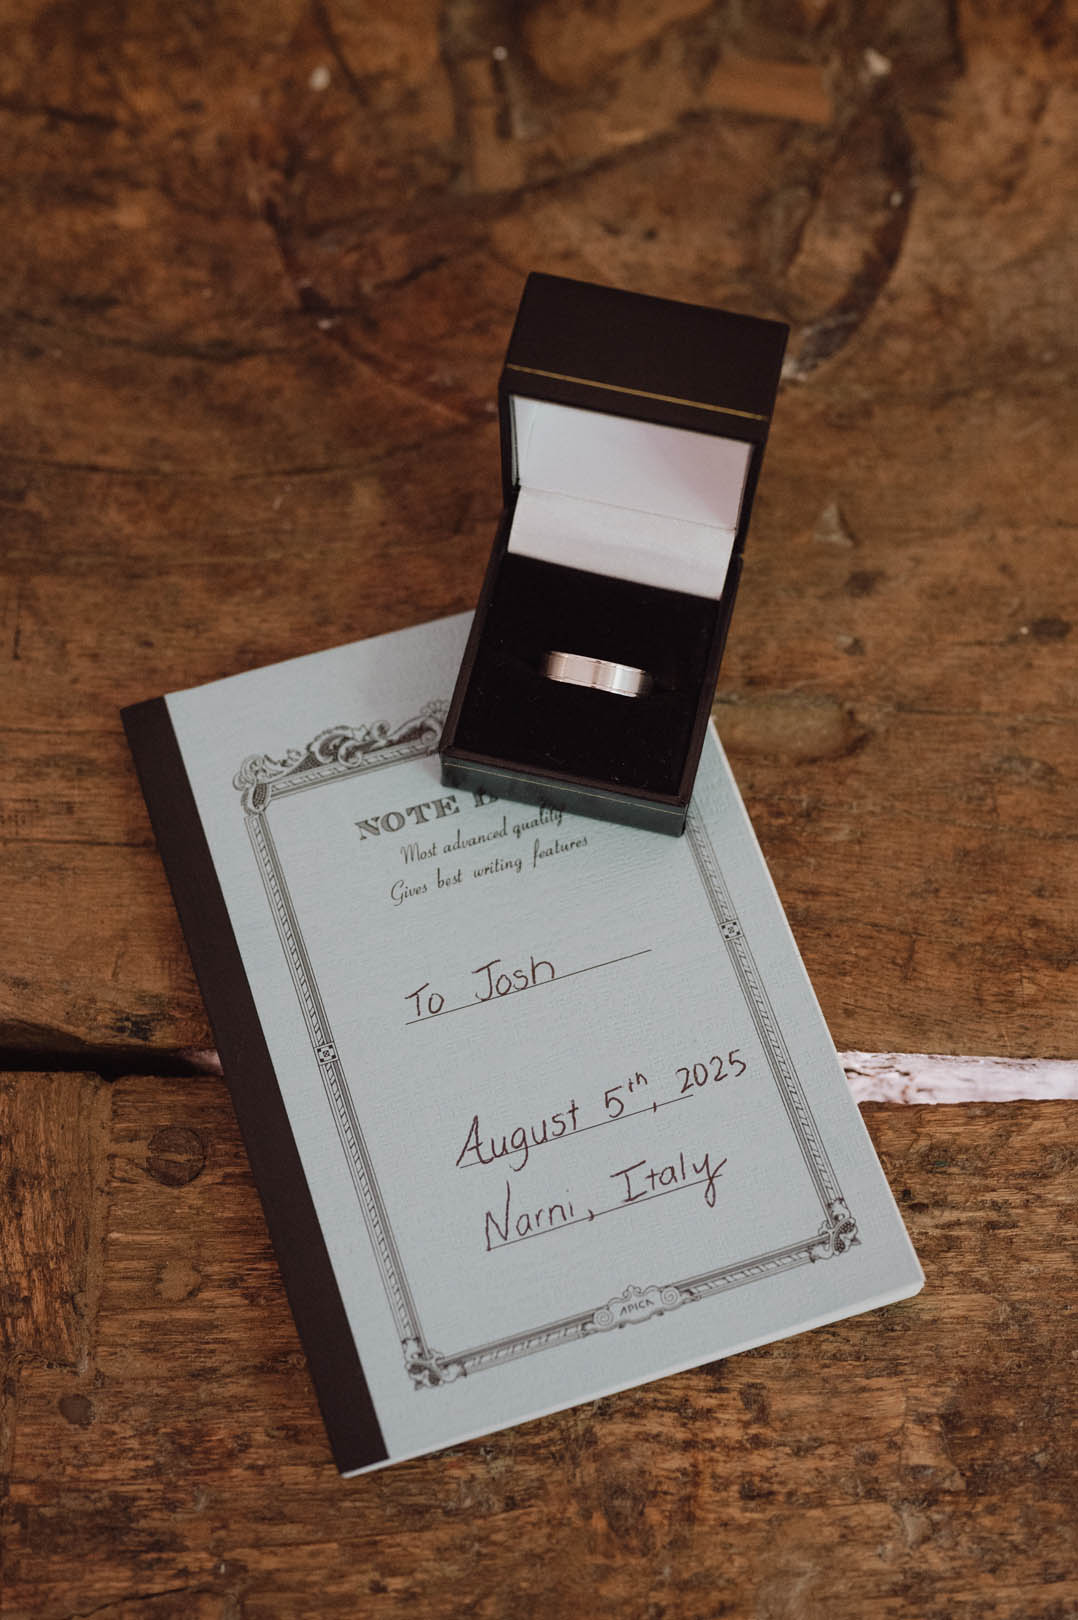 NOTE
Most advanced quality
Gives best writing features
To Josh
August 5th, 2025
Narni, Italy
APICA